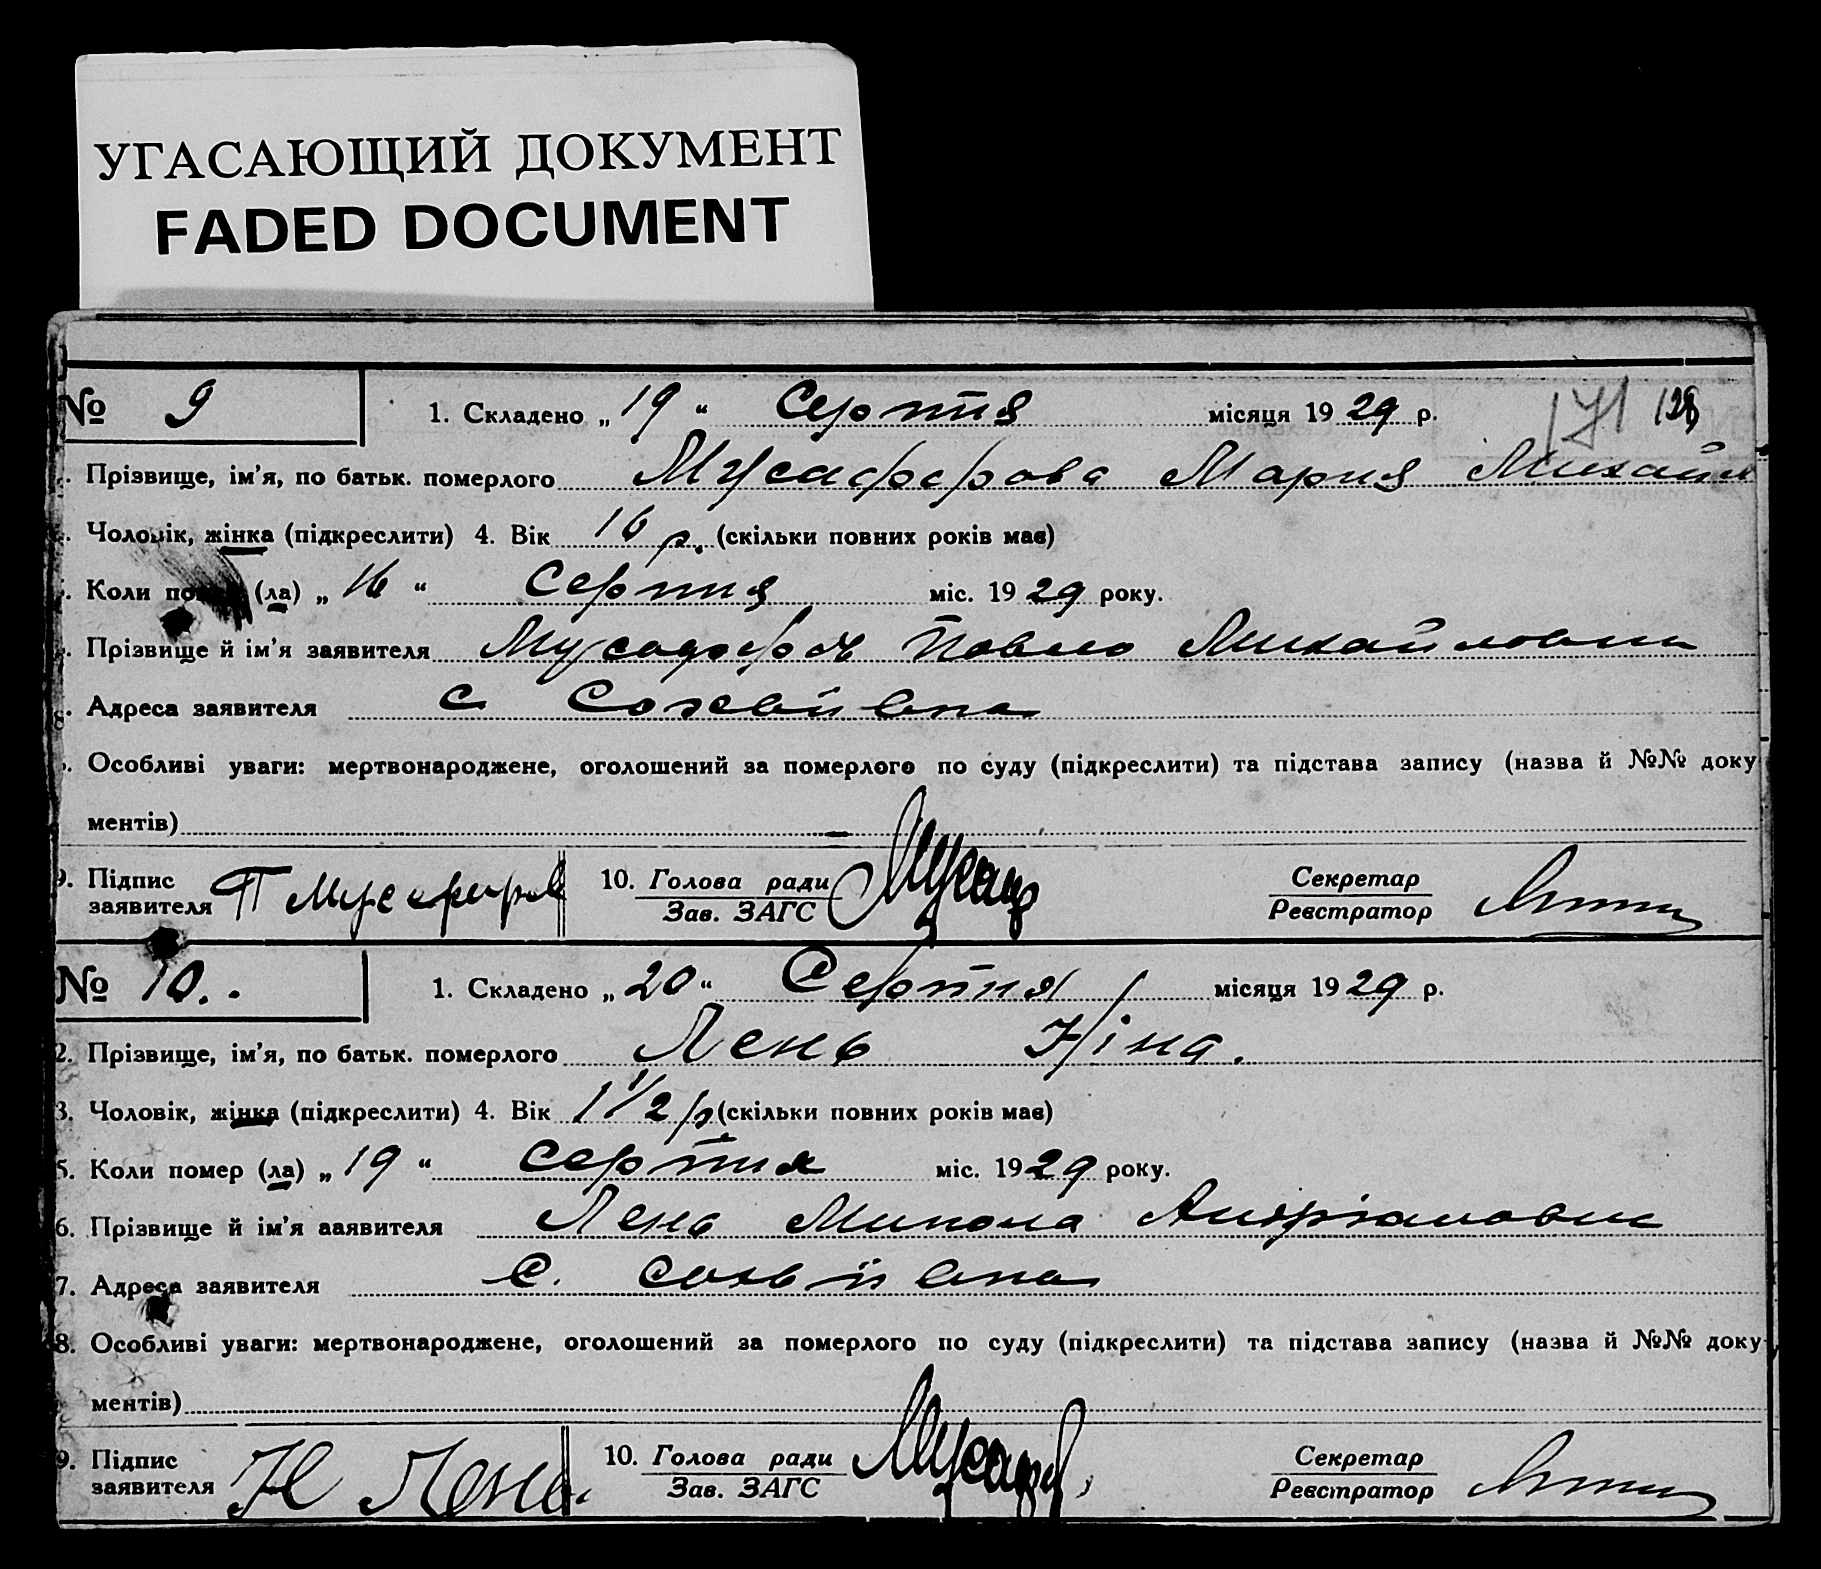 УГАСАЮЩИЙ ДОКУМЕНТ
FADED DOCUMENT
№ 9 1. Складено „ 19 “ Серпня місяця 19 29 р. 171 128
Прізвище, ім'я, по батьк. померлого Мусаферова Мария Михайл
Чоловік, жінка (підкреслити) 4. Вік 16 р. (скільки повних років має)
Коли помер (ла) „ 16 “ Серпня міс. 19 29 року.
Прізвище й ім'я заявителя Мусаферов Павло Михайлович
Адреса заявителя с
Особливі уваги: мертвонароджене, оголошений за померлого по суду (підкреслити) та підстава запису (назва й №№ доку
ментів)
9. Підпис заявителя П 10. Голова ради Зав. ЗАГС Секретар Реєстратор
№ 10. 1. Складено „ 20 “ Серпня місяця 19 29 р.
2. Прізвище, ім'я, по батьк. померлого Лень Ніна.
3. Чоловік, жінка (підкреслити) 4. Вік 1 1/2 р (скільки повних років має)
5. Коли помер (ла) „ 19 “ серпня міс. 19 29 року.
6. Прізвище й ім'я заявителя Лень Микола Андріянович
7. Адреса заявителя с.
8. Особливі уваги: мертвонароджене, оголошений за померлого по суду (підкреслити) та підстава запису (назва й №№ доку
ментів)
9. Підпис заявителя Н Лень. 10. Голова ради Зав. ЗАГС Секретар Реєстратор